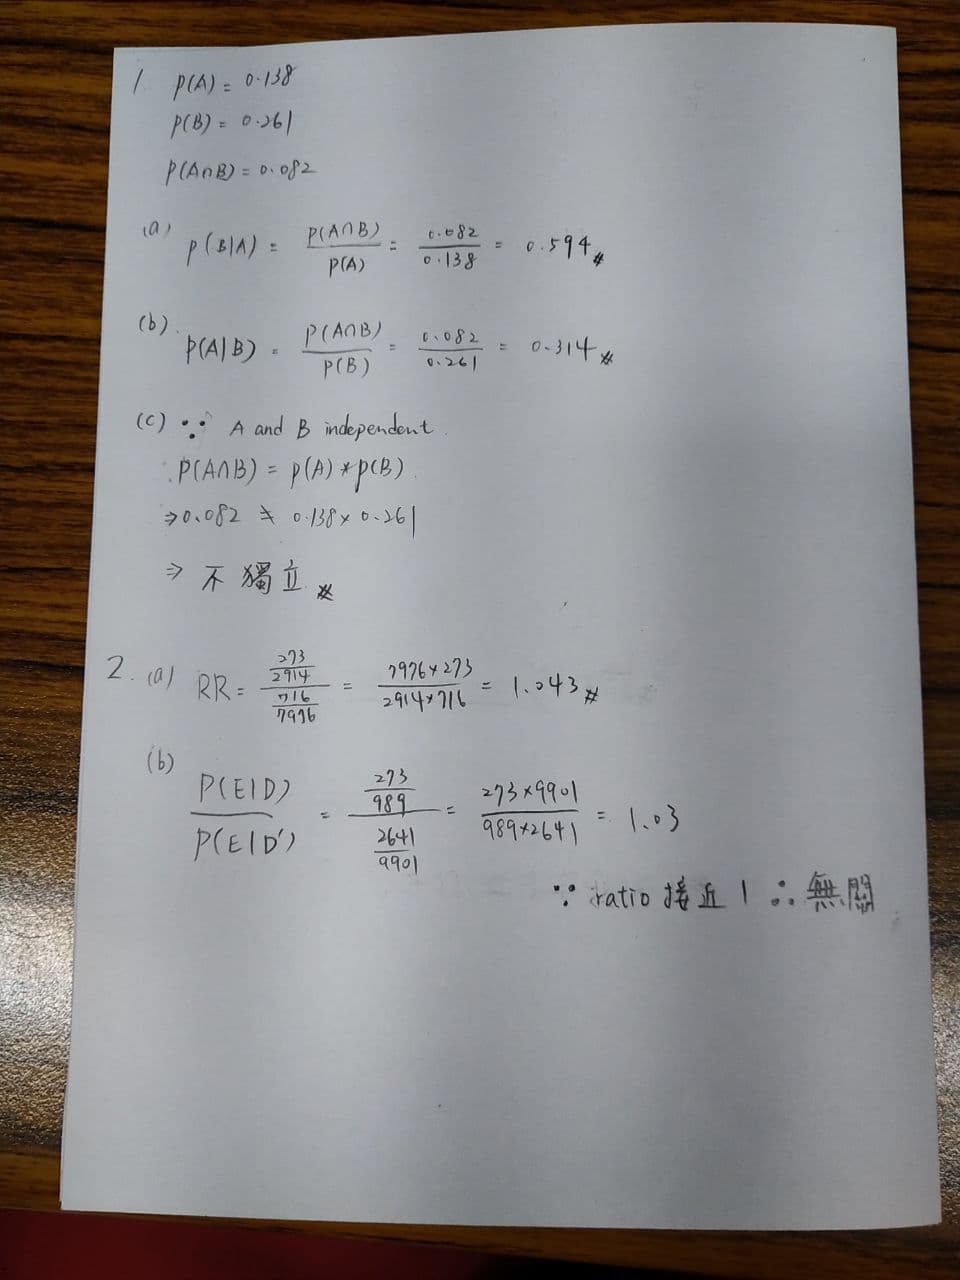 1. P(A) = 0.138
P(B) = 0.261
P(A∩B) = 0.082
(a) P(B|A) = P(A∩B) / P(A) = 0.082 / 0.138 = 0.594 #
(b). P(A|B) = P(A∩B) / P(B) = 0.082 / 0.261 = 0.314 #
(c) ∵ A and B independent.
P(A∩B) = P(A) * P(B).
⇒ 0.082 ≠ 0.138 × 0.261
⇒ 不獨立 #
2. (a) RR = (273 / 2914) / (716 / 7976) = 7976 × 273 / 2914 × 716 = 1.043 #
(b) P(E|D) / P(E|D') = (273 / 989) / (2641 / 9901) = 273 × 9901 / 989 × 2641 = 1.03
∵ ratio 接近 1 ∴ 無關